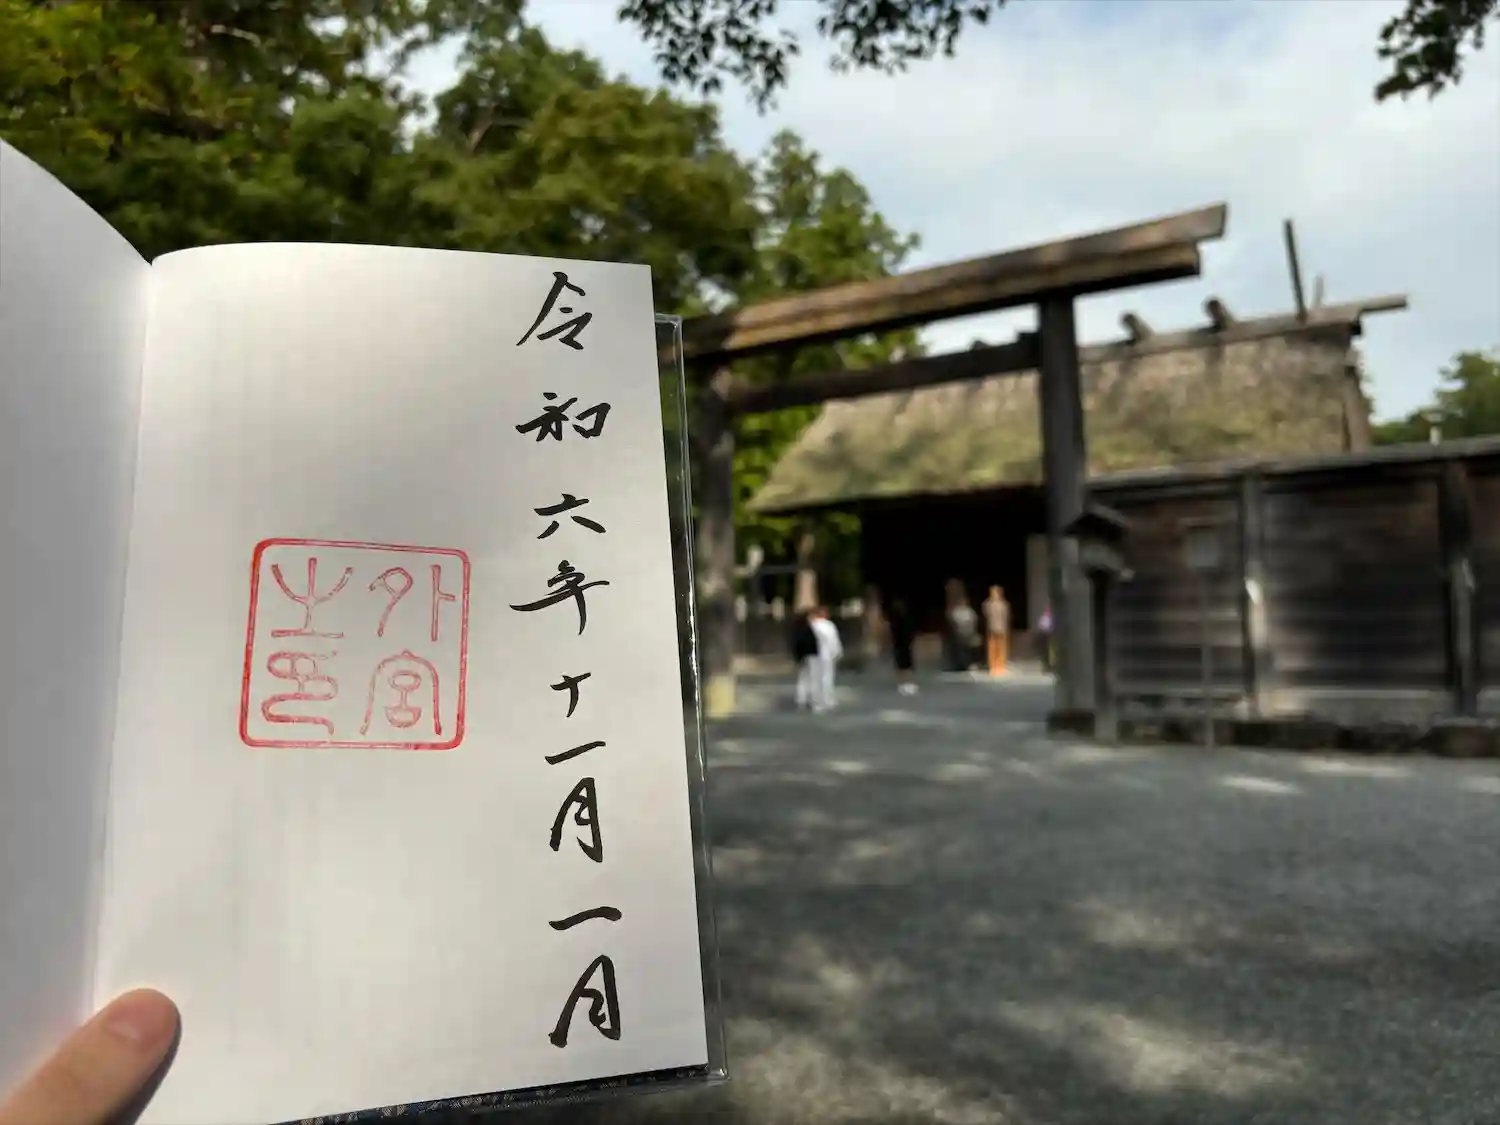 令和六年十一月一日
外宮
之印